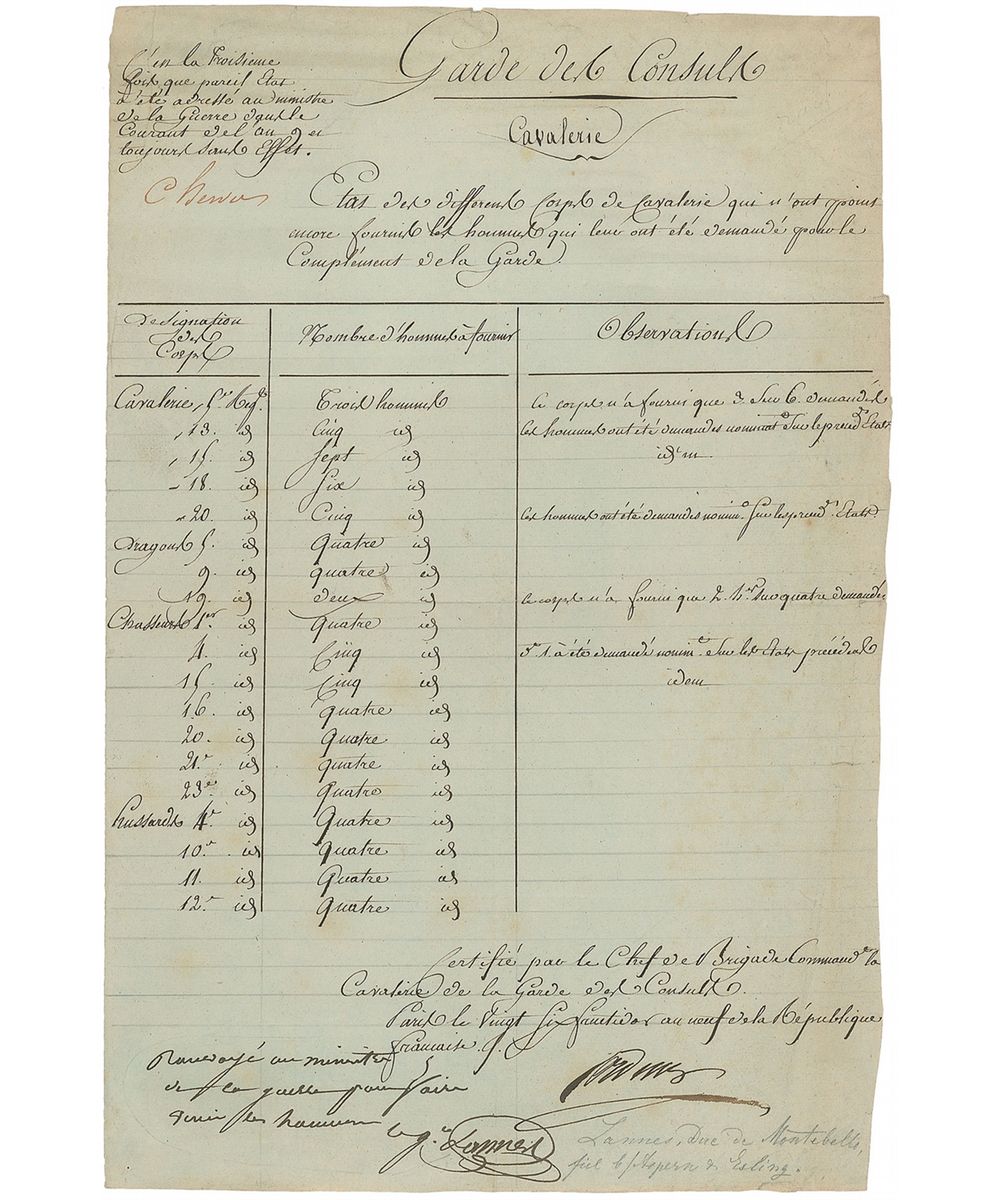 C'est la Troisieme
fois que pareil Etat
a été adressé au ministre
de la Guerre dans le
Courant de l'an 9 et
toujours sans Effet.
Garde des Consuls
Cavalerie
Etat des differens Corps de Cavalerie qui n'ont point
encore fournis les hommes qui leur ont été demandé pour le
Complément de la Garde.
Designation des Corps | Nombre d'hommes à fournir | Observations
Cavalerie, 5.e Reg.t | Trois hommes | Ce corps n'a fourni que 3. sur 6. demandés
13. id | Cinq id | les hommes ont été demandés nominat.t sur le preced.t Etat
15. id | Sept id | idem
18. id | Six id
20. id | Cinq id | les hommes ont été demandés nomin.t sur les preced.t Etats.
Dragons 5. id | Quatre id
9. id | quatre id
19. id | deux id | Ce corps n'a fourni que 2. h.es sur quatre demandés
Chasseurs 1.er id | Quatre id
4. id | Cinq id | 1. a été demandé nomin.t sur les Etats précédens
15. id | Cinq id | idem
16. id | quatre id
20. id | Quatre id
21.e id | quatre id
23.e id | Quatre id
hussards 4.e id | Quatre id
10.e id | Quatre id
11. id | Quatre id
12.e id | Quatre id
Certifié par le Chef de Brigade Command.t la
Cavalerie de la Garde des Consuls.
Paris le Vingt Six fructidor an neuf de la République
française
Renvoyé au ministre
de la guerre pour faire
venir les hommes
le g.l Lannes
Lannes, Duc de Montebello,
fiel b/Aspern & Esling.